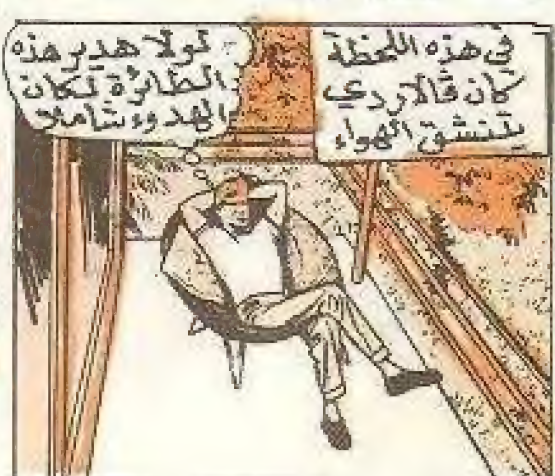 في هذه اللحظة
كان ڤالاردي
يتنشق الهواء
لولا هدير هذه
الطائرة لكان
الهدوء شاملا